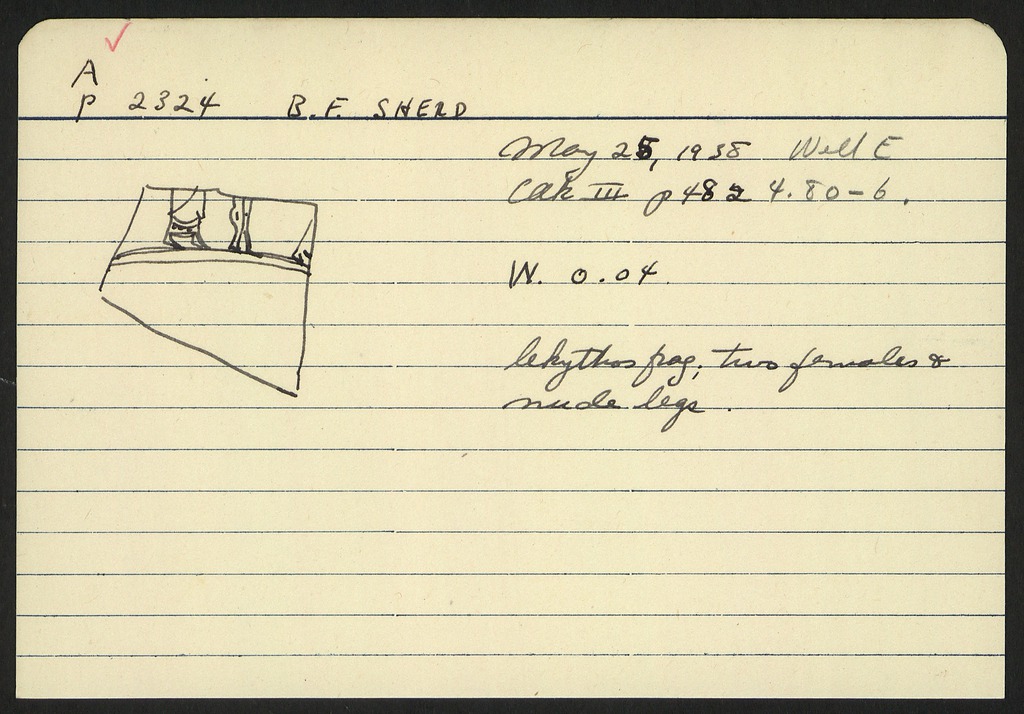 A
P 2324 B.F. SHERD
May 25, 1938 Well E
CAK III p 482 4.80-6.
W. 0.04
lekythos frag, two females &
nude legs.